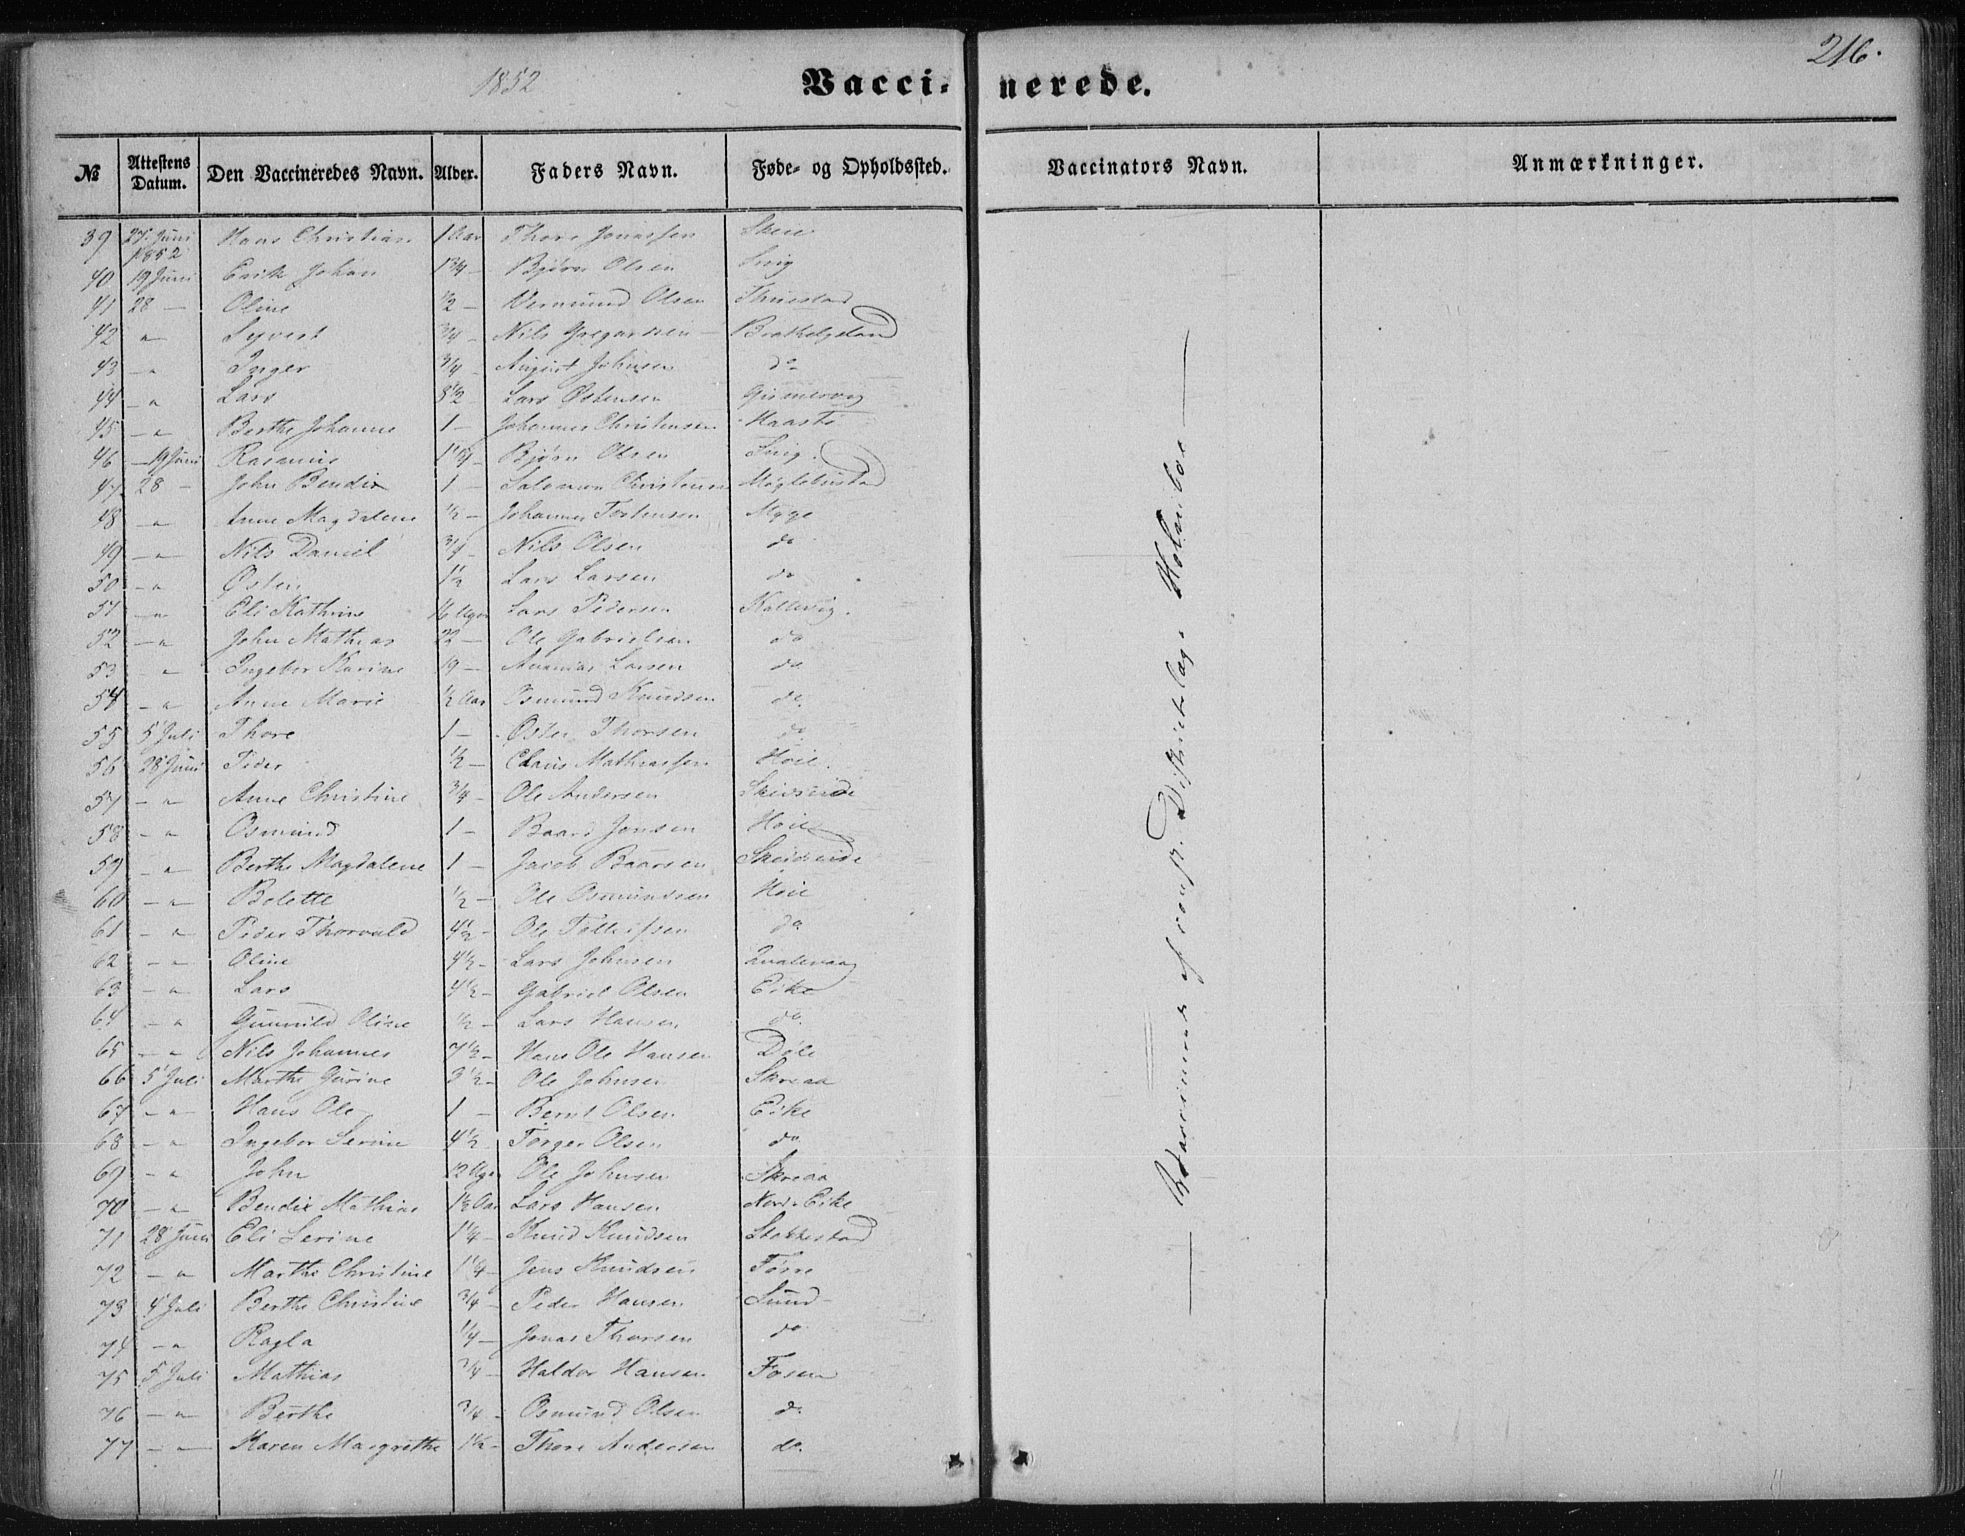 1852
Vacci- nerede.
216.
№ Attestens Datum. Den Vaccineredes Navn. Alder. Faders Navn. Føde- og Opholdssted. Vaccinators Navn. Anmærkninger.
39 27 Juni 1852 Hans Christian 1 Aar Thore Jonassen
40 19 Juni Erik Johan 1 3/4 - Bjørn Olsen
41 28 - Oline 1/2 - Vermund Olsen
42 - " Syvert 3/4 - Nils Gregorsen
43 - " Inger 3/4 August Johnsen do
44 - " Lars Lars Østensen
45 - " Berthe Johanne 1 - Johannes Christensen Haastø
46 - 19 Juni Rasmus Bjørn Olsen
47 28 - John Bendix 1 - Salomon Christensen
48 - " Anne Magdalene 1/2 - Johannes Tostensen Myge
49 - " Nils Daniel 3/4 - Nils Olsen do
50 - " Østen 1 1/2 Lars Larsen do
51 - " Eli Kathrine 16 Uger Lars Pedersen Kallevig.
52 - " John Mathias 22 - Ole Gabrielsen do
53 - " Ingebor Karine 19 - Ananias Larsen do
54 - " Anne Marie 1/2 Aar Osmund Knudsen do.
55 5 Juli Thore 1 - Østen Thorsen do
56 28 Juni Peder 1/2 - Claus Mathiassen Høie.
57 - " Anne Christine 3/4 - Ole Andersen
58 - " Osmund 1 - Baard Jonsen Høie
59 - " Berthe Magdalene 1 - Jacob Baarsen
60 - " Bolette 1/2 - Ole Osmundsen Høie
61 - " Peder Thorvald 4 1/2 - Ole Tollefsen do
62 - " Oline 4 1/2 - Lars Johnsen Qvalevaag
63 - " Lars 4 1/2 - Gabriel Olsen Eike
64 - " Gunnild Oline 1/2 - Lars Hansen do.
65 - " Nils Johannes 7 1/2 - Hans Ole Hansen Døle
66 5 Juli Marthe Gurine 3 1/2 - Ole Johnsen Skreaa
67 - " Hans Ole 1 - Bernt Olsen Eike
68 - " Ingebor Serine 4 1/2 - Torger Olsen do
69 - " John 12 Uger Ole Johnsen Skreaa
70 - " Bendix Mathias 1 1/2 Aar Lars Hansen Nord-Eike
71 28 Juni Eli Serine 1 1/4 - Knud Knudsen Stakkestad
72 - " Marthe Christine 1 1/4 - Jens Knudsen Førre
73 4 Juli Berthe Christine 3/4 - Peder Hansen Sund
74 - " Ragla 1/4 - Jonas Thorsen do
75 5 Juli Mathias 3/4 - Haldor Hansen Fosen
76 - " Berthe 3/4 - Osmund Olsen do
77 - " Karen Margrethe 1 1/2 - Thore Andersen do.
— Vaccinerede af const. Districtslæge Holmboe —